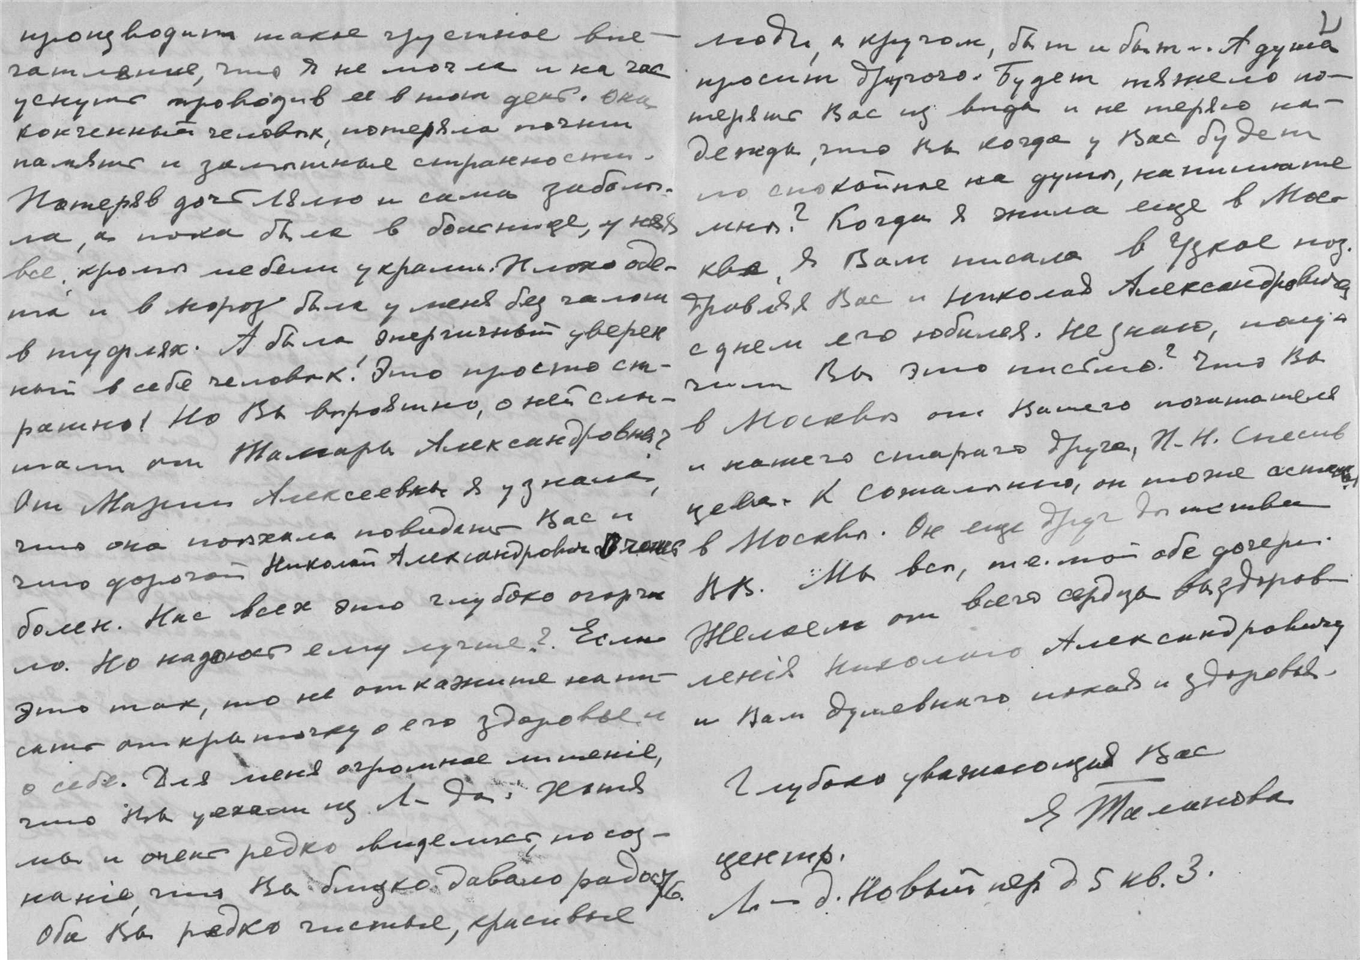 производит такое грустное впе-
чатление, что я не могла и на час
уснуть проводив ее в тот день. Она
конченный человѣк, потеряла почти
память и замѣтные странности.
Потеряв дочь Лялю и сама заболѣ-
ла, а пока была в больнице, у нея
все, кромѣ мебели украли. Плохо оде-
та и в мороз была у меня без галош
в туфлях. А была энергичный уверен
ный в себе человѣк! Это просто ст-
рашно! Но Вы вѣроятно, о ней слы-
шали от Тамары Александровны?
От Марии Алексеевны я узнала,
что она поѣхала повидать Вас и
что дорогой Николай Александрович очень
болен. Нас всех это глубоко огорчи
ло. Но надеюсь ему лучше? Если
это так, то не откажите напи-
сать открыточку о его здоровье и
о себе. Для меня огромное лишеніе,
что Вы уехали из Л-да. Хотя
мы и очень редко виделись, но соз-
наніе, что Вы близко давало радость.
Оба Вы редко чистые, красивые
2
люди, а кругом, быт и быт... А душа
просит другого. Будет тяжело по-
терять Вас из вида и не теряю на-
дежды, что Вы когда у Вас будет
по спокойнее на душѣ, напишите
мнѣ? Когда я жила еще в Мос-
квѣ, я Вам писала в Узкое поз.
дровляя Вас и Николая Александровича
с днем его юбилея. Не знаю, полу-
чили Вы это письмо? Что Вы
в Москвѣ от Вашего почитателя
и нашего стараго друга, П.Н. Спесив
цева. К сожалѣнию, он тоже остался
в Москвѣ. Он еще друг дѣтства
ВК. Мы всѣ, т.е. мои обе дочери.
Желаем от всего сердца выздоров-
ленія Николаю Александровичу
и Вам душевнаго покоя и здоровья.
Глубоко уважающая Вас
Я Таланова
центр.
Л-д. Новый пер д 5 кв. 3.